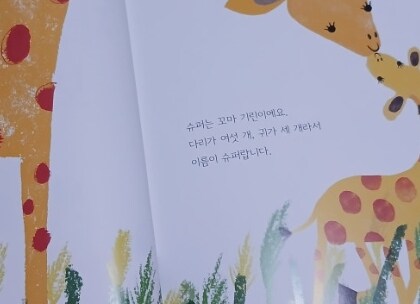 슈퍼는 꼬마 기린이에요.
다리가 여섯 개, 귀가 세 개라서
이름이 슈퍼랍니다.